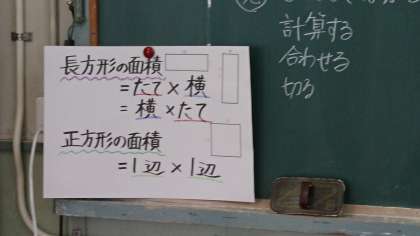 長方形の面積
=たて×横
=横×たて
正方形の面積
=1辺×1辺
計算する
合わせる
切る